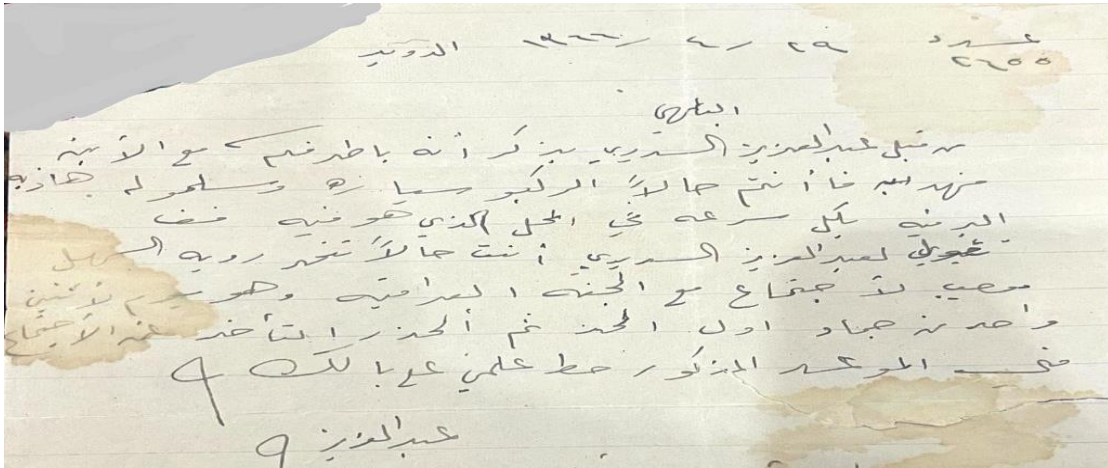 عدد ٢٦٥٥ ٢٩ / ٤ / ١٣٦٦ الدويد
من قبل عبدالعزيز السديري يذكر أنه باطرفكم مع الأبن
فهد فا أنتم حالاً اركبو سياره وسلمو له هاذه
البرقيه بكل سرعه في المحل الذي هو فيه
لعبدالعزيز السديري أنت حالاً رويه
لأجتماع مع الجنه العراقيه وهو يوم لأثنين
واحد من جماد اول الحذر ثم ألحذر التأخر عن الأجتماع
في الموعد المذكور حط علمي على بالك
عبدالعزيز